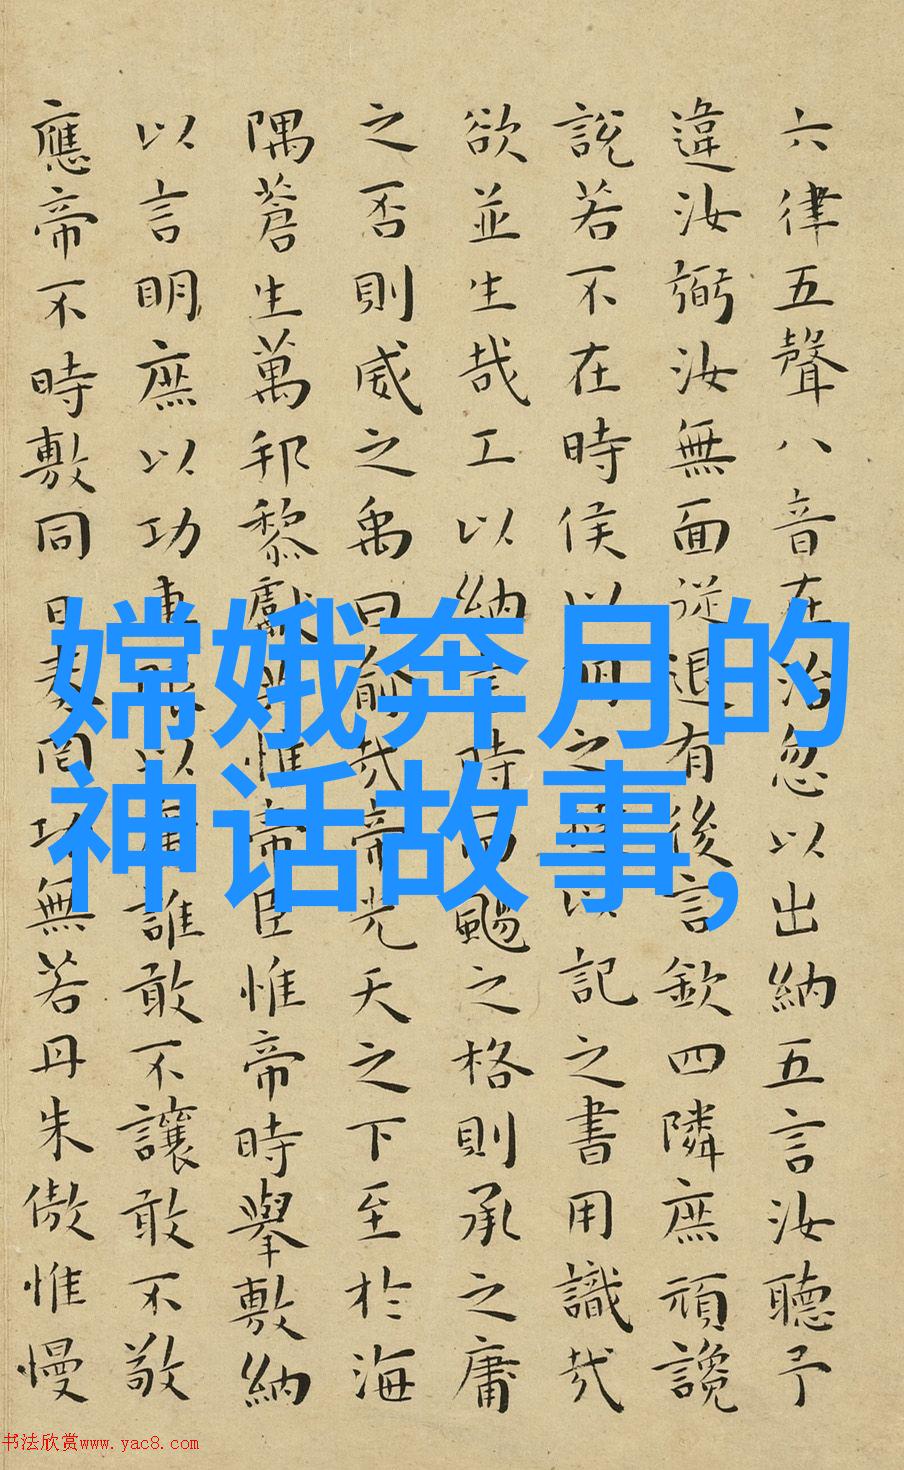 六律五聲八音在治忽以出納五言汝聽予
違汝弼汝無面從退有後言欽四隣庶頑讒
說若不在時侯以明之以記之書用識哉
欲並生哉工以納言時而颺之格則承之庸
之否則威之禹曰俞哉帝光天之下至於海
隅蒼生萬邦黎獻共惟帝臣惟帝時舉敷納
以言明庶以功車服以庸誰敢不讓敢不敬
應帝不時敷同日奏罔功無若丹朱傲惟慢
嫦娥奔月的
神话故事,
书法欣赏www.yac8.com